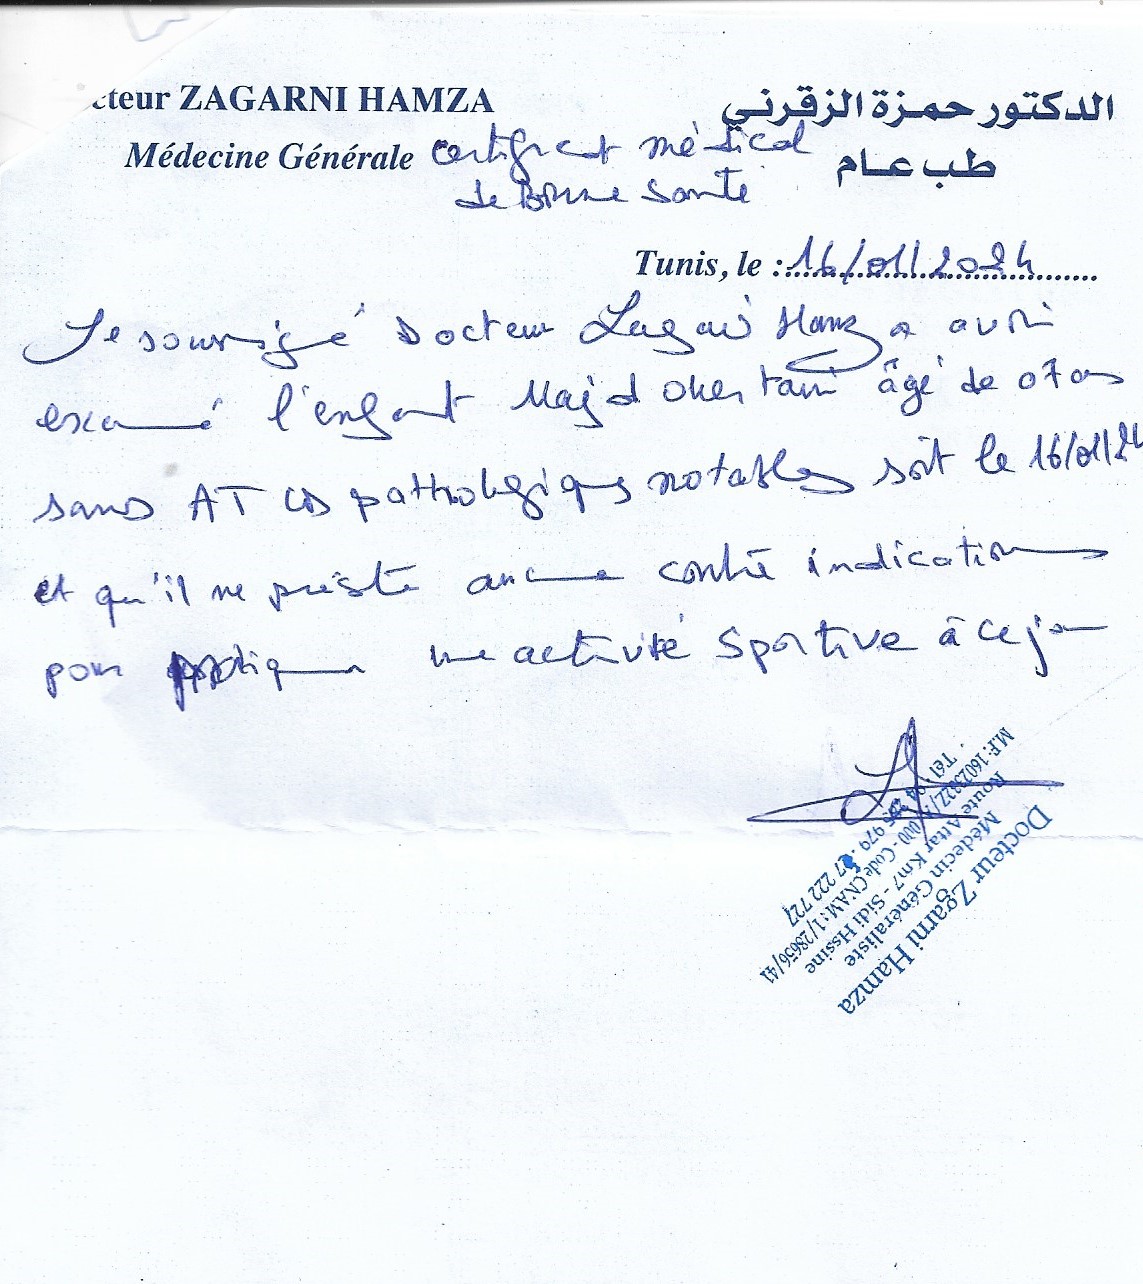 cteur ZAGARNI HAMZA
الدكتور حمزة الزقرني
Médecine Générale
طب عام
Certificat médical
de Bonne Santé
Tunis, le : 16/01/2024
Je soussigné Docteur Zagarni Hamza avoir
examiné l'enfant Majd âgé de 07 ans
sans ATCDs pathologiques notables soit le 16/01/24
et qu'il ne présente aucune contre indication
pour pratiquer une activité sportive à ce jour
Docteur Zgarni Hamza
Médecin Généraliste
Route Attar Km7 - Sidi Hssine
000 - Code CNAM : 1/28656/41
979 . 27 222 727